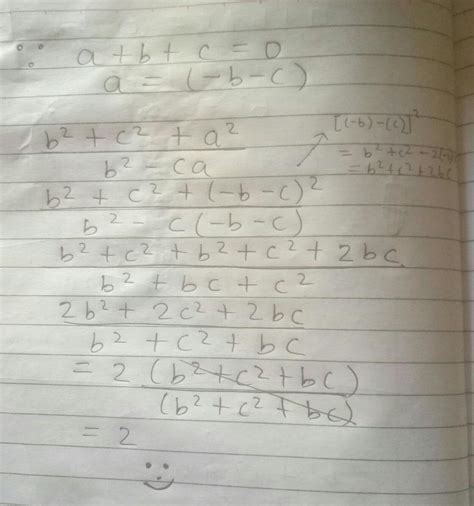 ∵ a + b + c = 0
a = (-b-c)
b² + c² + a²
b² - ca
[(-b)-(c)]²
= b² + c² - 2(-
= b² + c² + 2bc
b² + c² + (-b-c)²
b² - c(-b-c)
b² + c² + b² + c² + 2bc
b² + bc + c²
2b² + 2c² + 2bc
b² + c² + bc
= 2 (b² + c² + bc)
(b² + c² + bc)
= 2